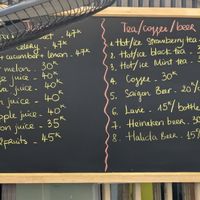 47ᴷ
celery . 47ᴷ
+ cucumber + lemon . 47ᴷ
melon . 30ᴷ
juice . 40ᴷ
juice . 40ᴷ
juice . 40ᴷ
juice . 40ᴷ
apple juice . 40ᴷ
juice - 35ᴷ
fruits . 45ᴷ
Tea/coffee/beer
1. Hot/ice Strawberry tea
2. Hot/ice black tea .
3. Hot/ice Mint tea .
4. Coffee . 30ᴷ
5. Saigon Beer . 20%
6. Larue . 15ᴷ/bottle
7. Heineken beer . 30
8. Halida Beer . 15